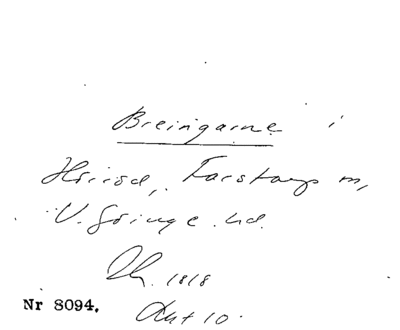 Breingarne i
Hörröd, Farstorp m,
V. Göinge hd.
1818
Nr 8094.
Akt 10.